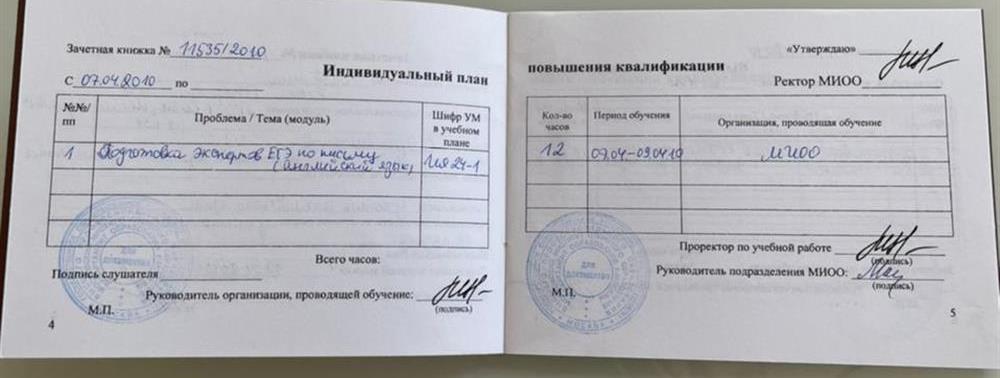 Зачетная книжка № 11535/2010
С 07.04.2010 по
Индивидуальный план
№№/пп Проблема / Тема (модуль) Шифр УМ в учебном плане
1 Подготовка экспертов ЕГЭ по письму (английский язык) ИЯ 24-1
Всего часов:
Подпись слушателя
Руководитель организации, проводящей обучение:
(подпись)
М.П.
4
«Утверждаю»
повышения квалификации
Ректор МИОО
Кол-во часов Период обучения Организация, проводящая обучение
12 07.04-09.04.10 МИОО
Проректор по учебной работе
(подпись)
Руководитель подразделения МИОО:
(подпись)
М.П.
5
для документов
МОСКВА